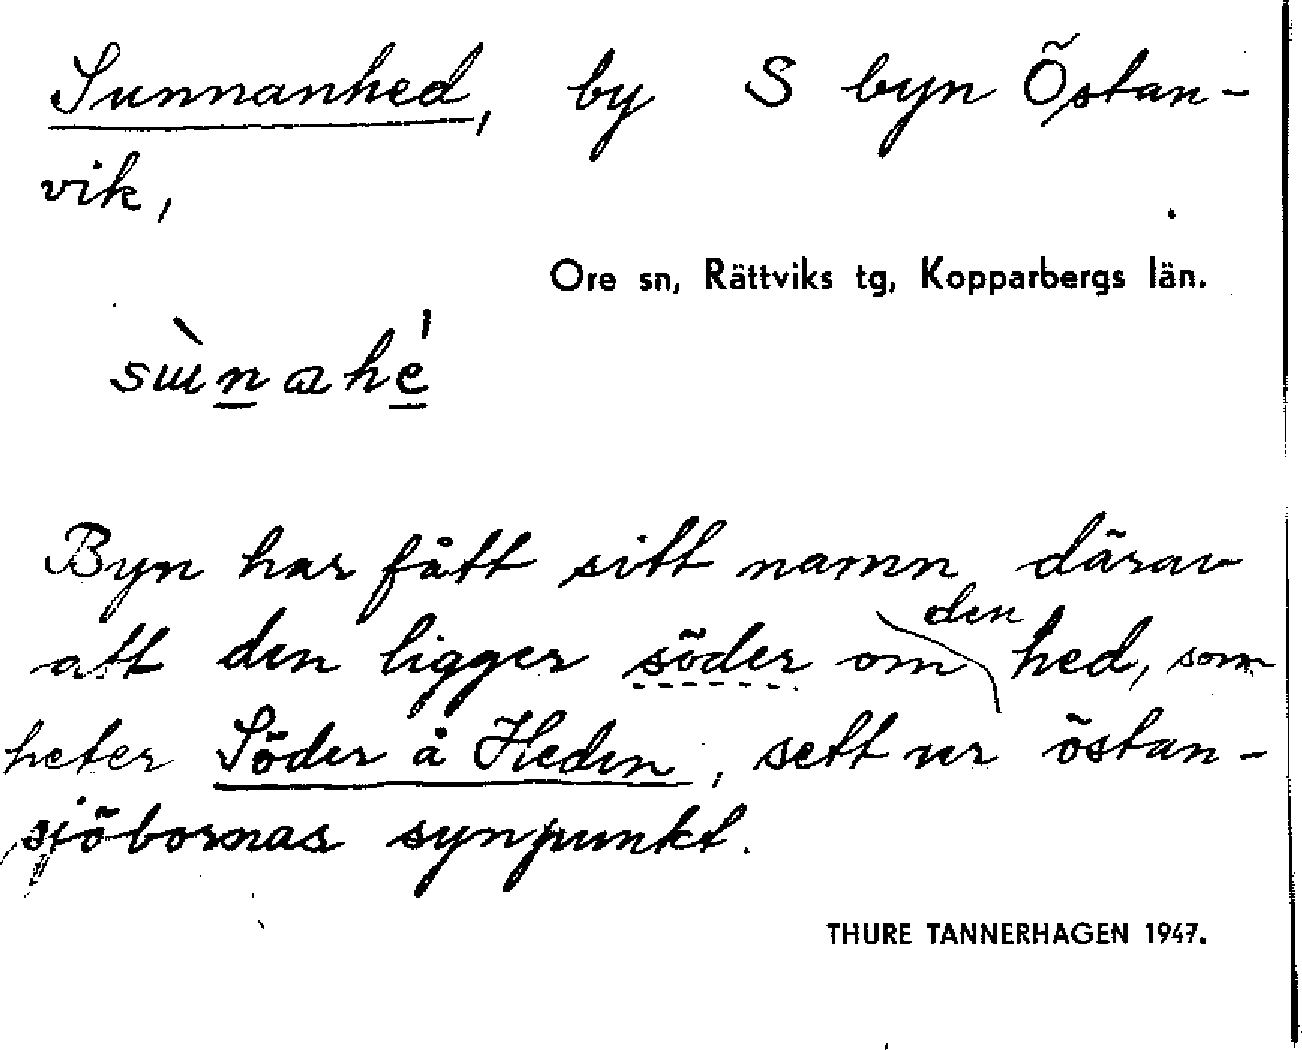 Sunnanhed, by S byn Östan-
vik,
Ore sn, Rättviks tg, Kopparbergs län.
Byn har fått sitt namn därav
att den ligger söder om den hed, som
heter Söder å Heden, sett ur östan-
sjöbornas synpunkt.
THURE TANNERHAGEN 1947.